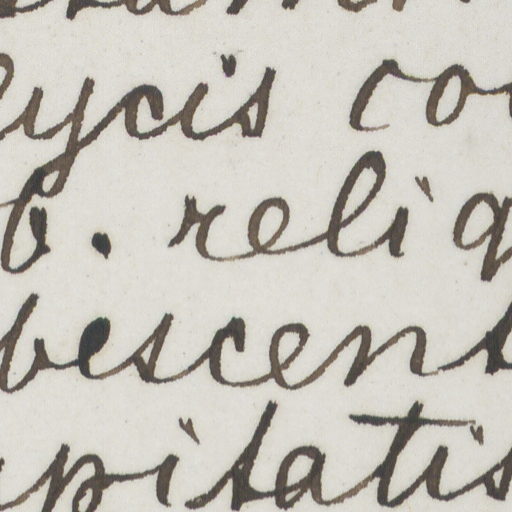 lycis co
b. relig
bescens
pitatis